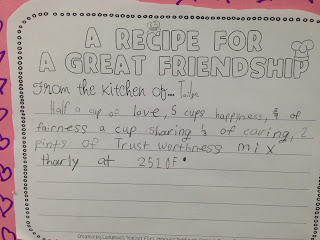 A RECIPE FOR
A GREAT FRIENDSHIP
From the kitchen of...
Half a cup of love, 5 cups happyness, of
fairness a cup sharing of caring, 2
pints of Trust worthness mix
tharly at 251 OF